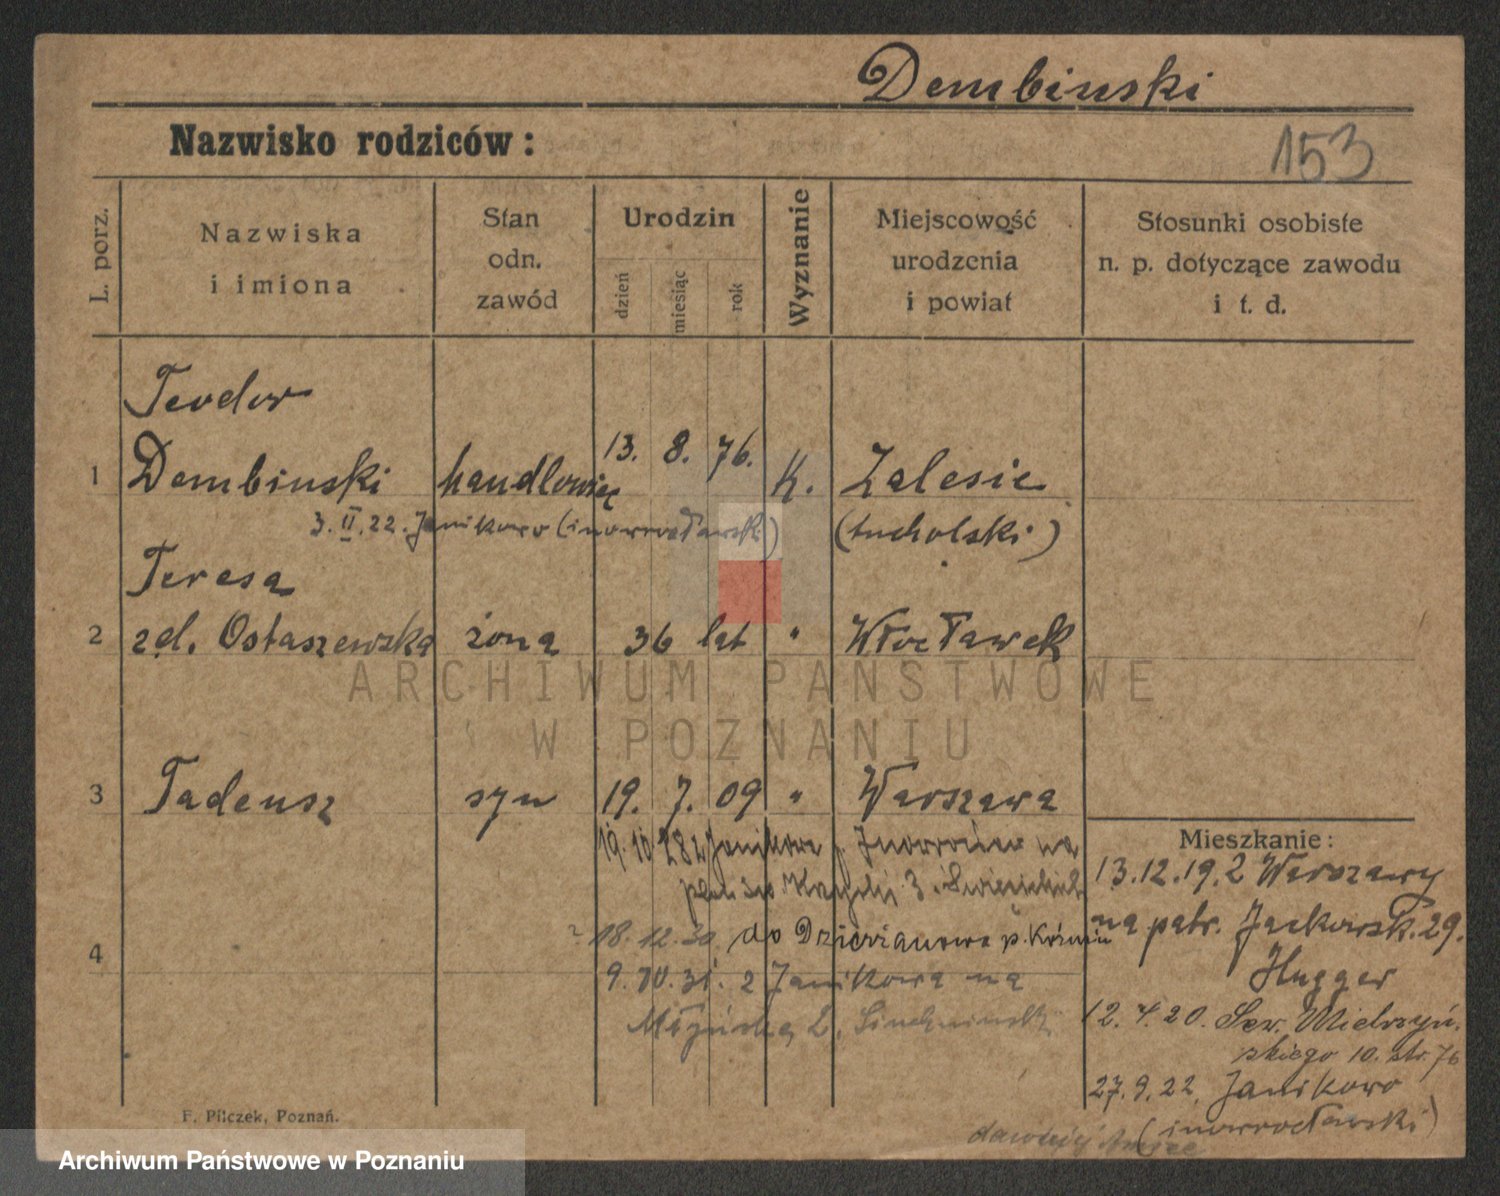 Dembinski
Nazwisko rodziców:
153
L. porz.
Nazwiska
i imiona
Stan
odn.
zawód
Urodzin
dzień
miesiąc
rok
Wyznanie
Miejscowość
urodzenia
i powiat
Stosunki osobiste
n. p. dotyczące zawodu
i t. d.
Teodor
1 Dembinski handlowiec 13. 8. 76. K. Zalesie
3. II. 22. Janikowo (inowrocławski) (tucholski)
Teresa
2 zd. Ostaszewska żona 36 lat " Włocławek
ARCHIWUM PAŃSTWOWE
W POZNANIU
3 Tadeusz syn 19. 7. 09 " Warszawa
19. 10. 28 z Janikowa p. Inowrocław na
3
18. 12. 30 do Dzierzanowa p.
4
9. 10. 31. z Janikowa na
2,
Mieszkanie:
13.12.19. z Warszawy
na patr. Jackowsk. 29.
Hugger
12. 4. 20. Sew. Mielżyń-
skiego 10. str. 76
27. 9. 22. Janikowo
(inowrocławski)
F. Pilczek, Poznań.
Archiwum Państwowe w Poznaniu